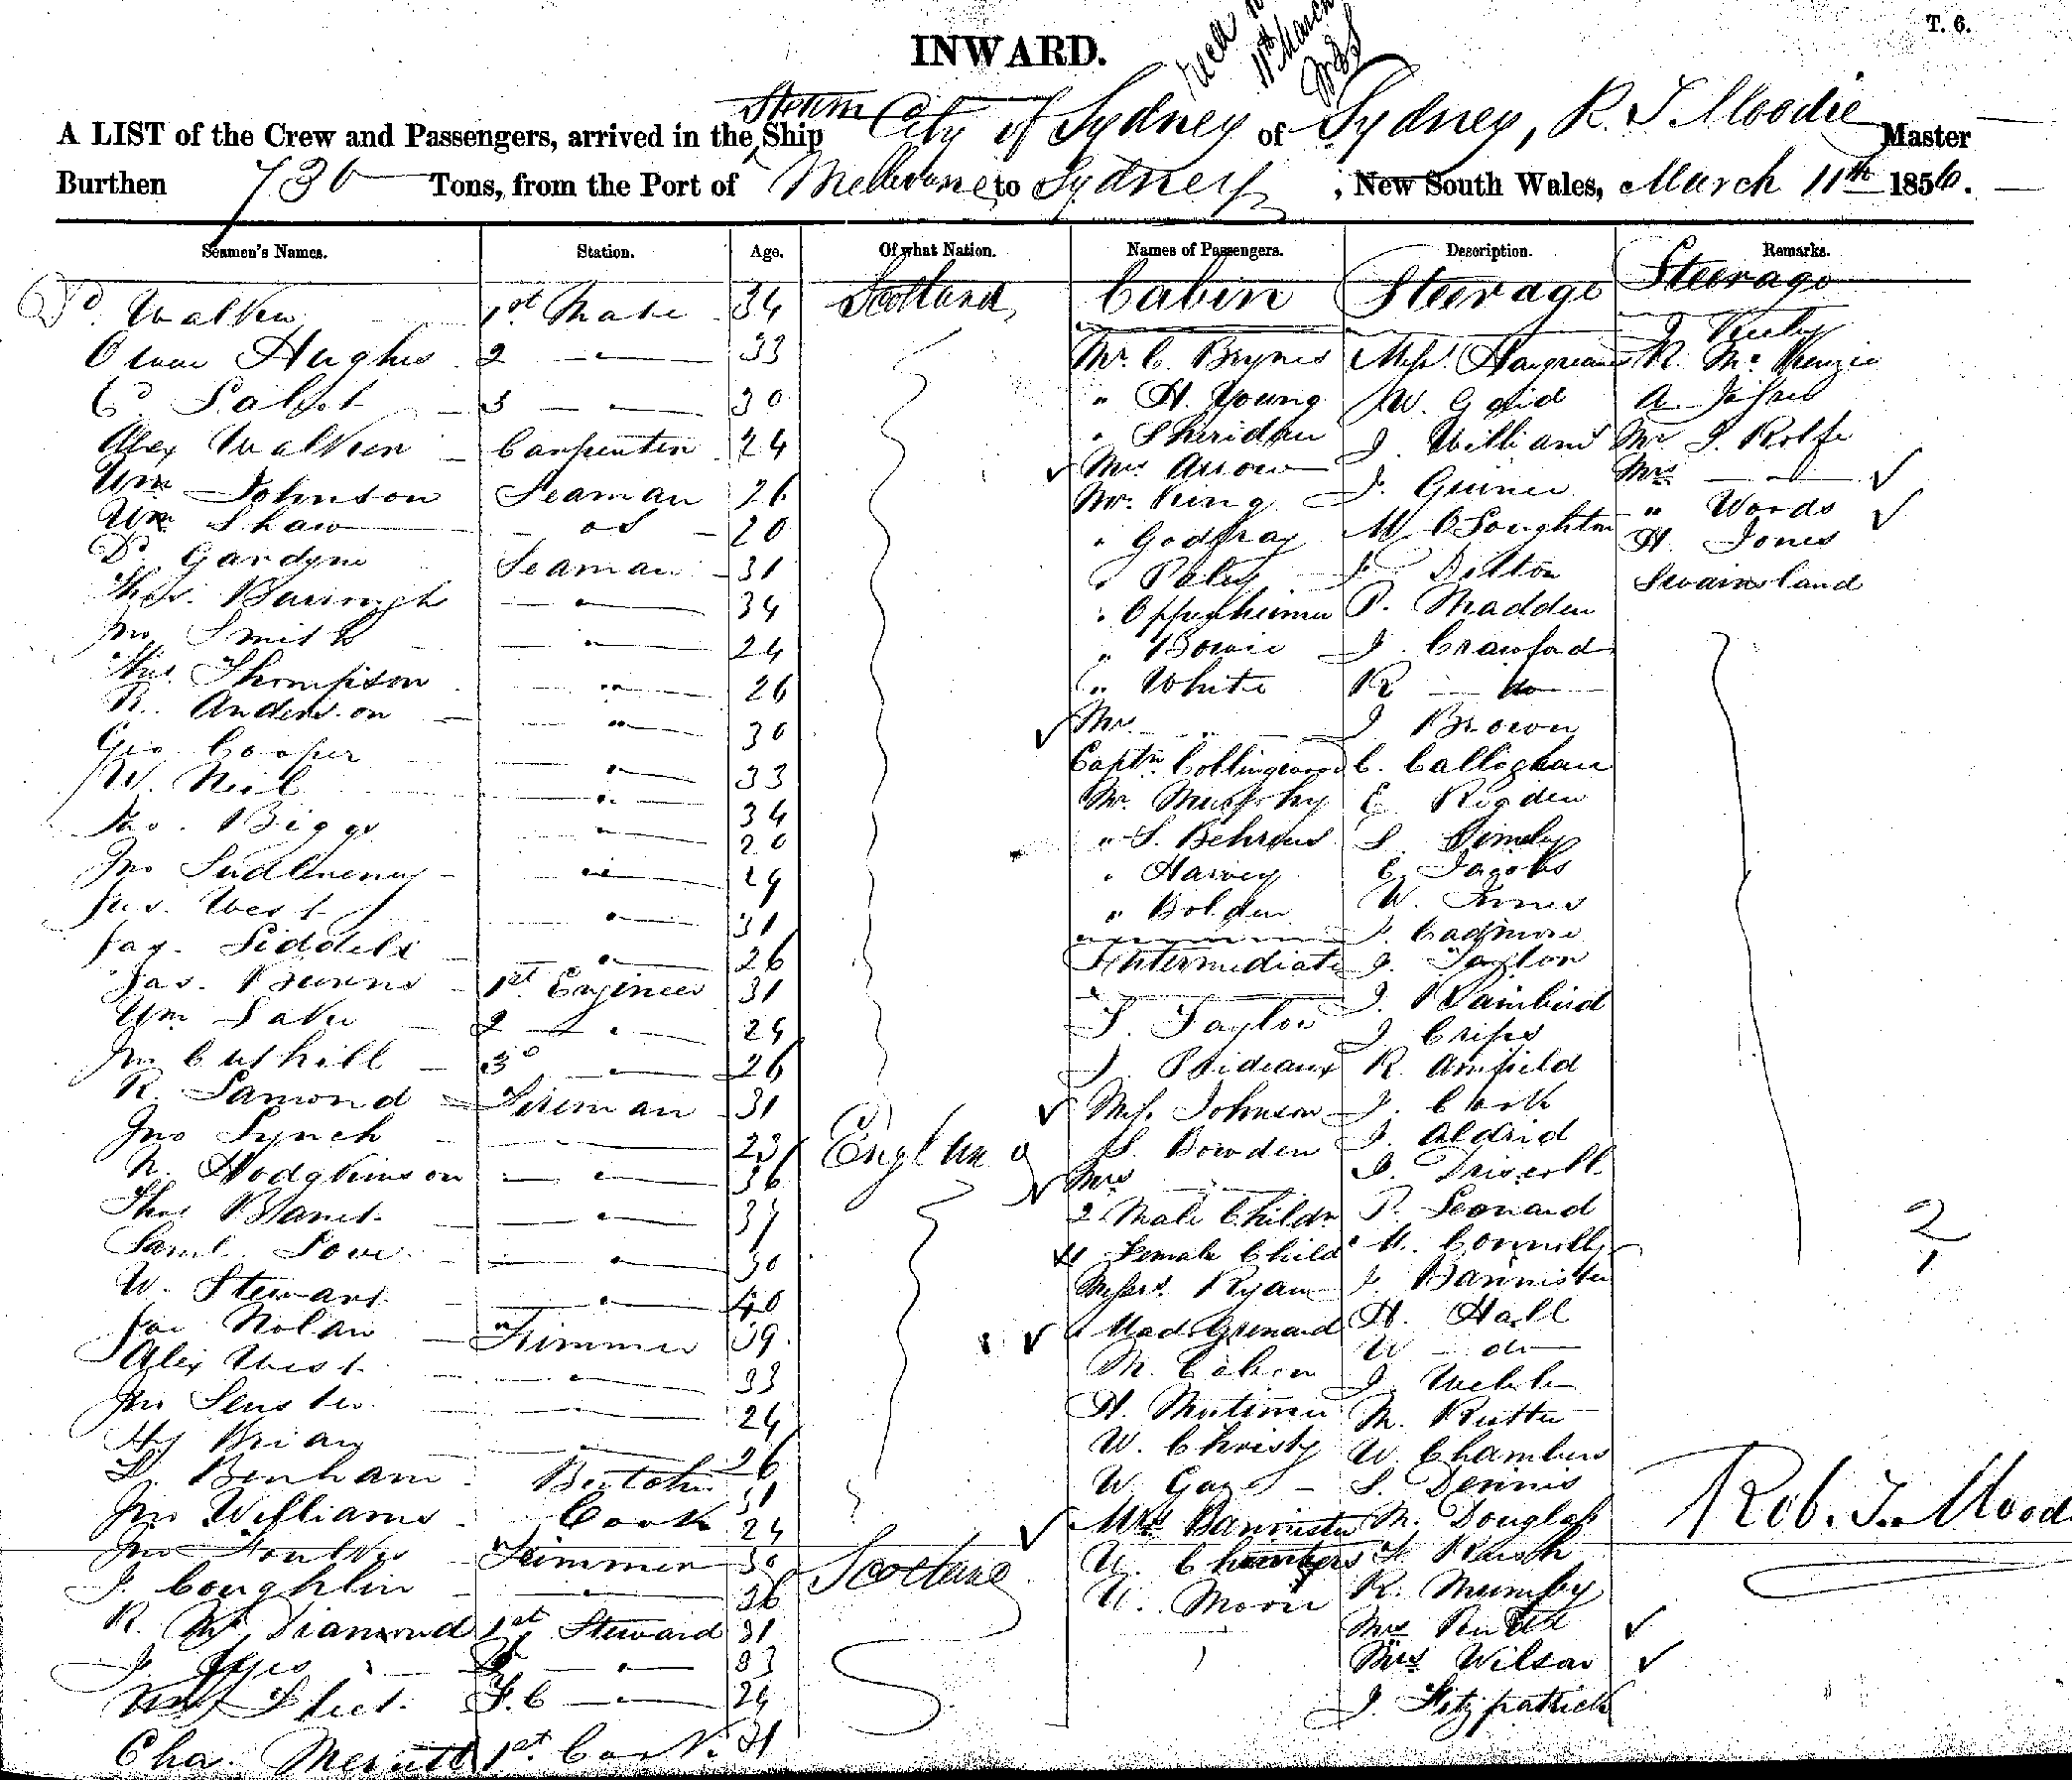 T. 6.
INWARD.
11th March
A LIST of the Crew and Passengers, arrived in the Steam Ship City of Sydney of Sydney, R. T. Moodie Master
Burthen 730 Tons, from the Port of Melbourne to Sydney, New South Wales, March 11th 1856.
Seamen's Names. Station. Age. Of what Nation. Names of Passengers. Description. Remarks.
D. Walker 1st Mate 34 Scotland
Owen Hughes 2 " 33
3 " 30
Alex Walker Carpenter 24
Wm Johnson Seaman 26
Wm Shaw os 20
D. Gardyne Seaman 31
Thos. Burrough " 34
Jno Smith " 24
Thos. Thompson " 26
R. Anderson " 30
Geo Cooper " 33
W. Neil " 34
Jno. Biggs " 20
Jno " 24
Jas. West " 31
Jas. Siddels " 26
Jas. Burns 1st Engineer 31
Wm 2 " 24
Jno Cuthill 3 " 26
R. Lamond Fireman 31
Jno Lynch " 23 England
N. Hodgkinson " 36
Thos "
Saml. Love " 30
W. Stewart " 40
Jas Nolan Trimmer 39
Alex West " 33
Jno " 24
Hy Brian " 26
D. Benham Butcher 31
Jno Williams Cook 24
Jno Trimmer 30 Scotland
J. Coughlin " 36
R. Mc Diamond 1st Steward 31
J. " 33
F. C " 24
Cha. Merritt 1st Cook 31
Cabin
Mr. C. Brynes
" H. Young
" Sheridan
Mrs Arrow
Mr. King
" Godfray
" Paley
" Oppenheimer
" Bowie
" White
Mrs "
Captn. Collingwood
Mr. Murphy
" S. Behrens
" Harvey
" Bolden
Intermediate
S. Taylor
J. Prideaux
Miss Johnson
S. Bowden
Mrs "
2 Male Childn
Female Child
Messrs. Ryan
Mad. Grenard
M. Cohen
H. Mutimer
W. Christy
W.
Mrs Bannister
W. Chambers
W.
Steerage
Miss Hargreaves
W. Gaid
J. Williams
J.
M. O'Loughton
J.
P. Madden
J. Crawford
R do
J. Brown
C. Callaghan
E Rigden
S.
C. Jacobs
W. Innes
J. Cadmore
J. Taylor
J. Rainbird
J. Crips
R. Amfield
J. Clark
J. Aldrid
J. Driscoll
P. Leonard
M. Connolly
J. Bannister
H. Hall
W do
J. Webb
M. Rutter
W. Chambers
S. Dennis
M. Douglass
R. Mumby
Mrs
Mrs Wilson
J. Fitzpatrick
Steerage
J.
R. Mc Kenzie
A
Mr J. Rolfe
Mrs "
" Woods
H. Jones
Swainsland
2
1
Rob. T. Mood